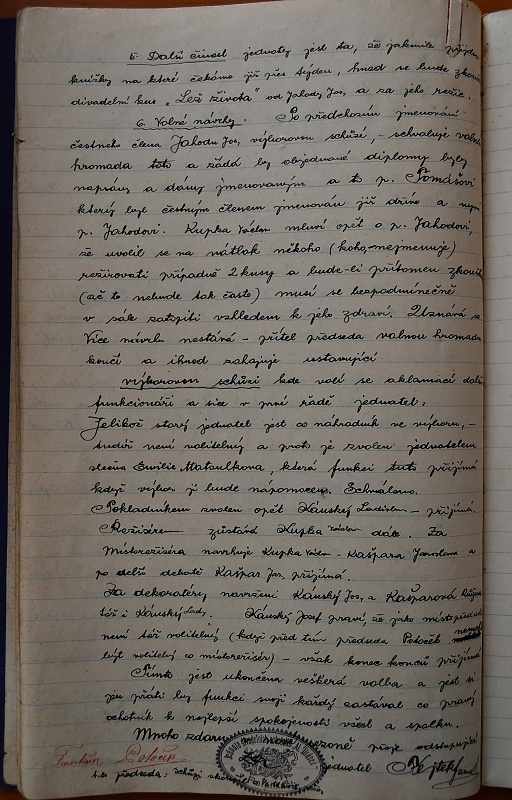 5. Další činost jednatey jest ta, že jakmile přijdou
knížky na které čekáme již přes týden, hned se bude zkoušeti
divadelní kus „Lež života" od Jahody Jos. a za jeho režie.
6. Volné návrhy. Po předchozím jmenování
čestného člena Jahodu Jos. výborovou schůzí, – schvaluje valná
hromada toto a žádá by objednané diplomy byly
napsány a dány jmenovaným a to p. Tomášovi
který byl čestným členem jmenován již dříve a nyní
p. Jahodovi. Kupka Václav mluví opět o p. Jahodovi,
že uvolil se na nátlak někoho (koho, nejmenuje)
režírovati případně 2 kusy a bude-li přítomen zkoušky
(ač to nebude tak často) musí se bezpodmínečně
v sále zatopiti vzhledem k jeho zdraví. Uznává se
Více návrhů nestává – přítel předseda valnou hromadu
končí a ihned zahajuje ustavující
výborovou schůzi kde volí se aklamací další
funkcionáři a sice v prvé řadě jednatel:
Jelikož starý jednatel jest co náhradník ve výboru, –
tudíž není volitelný a proto je zvolen jednatelem
slečna Emilie Mataulkova, která funkci tuto přijímá
když výbor jí bude nápomocen. Schváleno.
Pokladníkem zvolen opět Kánský Ladislav – přijímá.
Režisérem zůstává Kupka Václav dále. Za
místorežiséra navrhuje Kupka Václav – Kašpara Jaroslava a
po delší debatě Kašpar Jar. přijímá.
Za dekoratéry navrženi Kánský Jos. a Kašparová
též i Kánský Lad. Kánský Josef praví, že jako místopředseda
není též volitelný (když před tím předseda Potoček nemohl
být volitelný co místorežisér) – však konec konců přijímá
Tímto jest ukončena veškerá volba a jest si
jen přáti by funkci svoji každý zastával co pravý
ochotník k nejlepší spokojenosti všech a spolku.
Mnoho zdaru přeje odstupující
František Potoček jednatel Vojtěch
t.č. předseda: